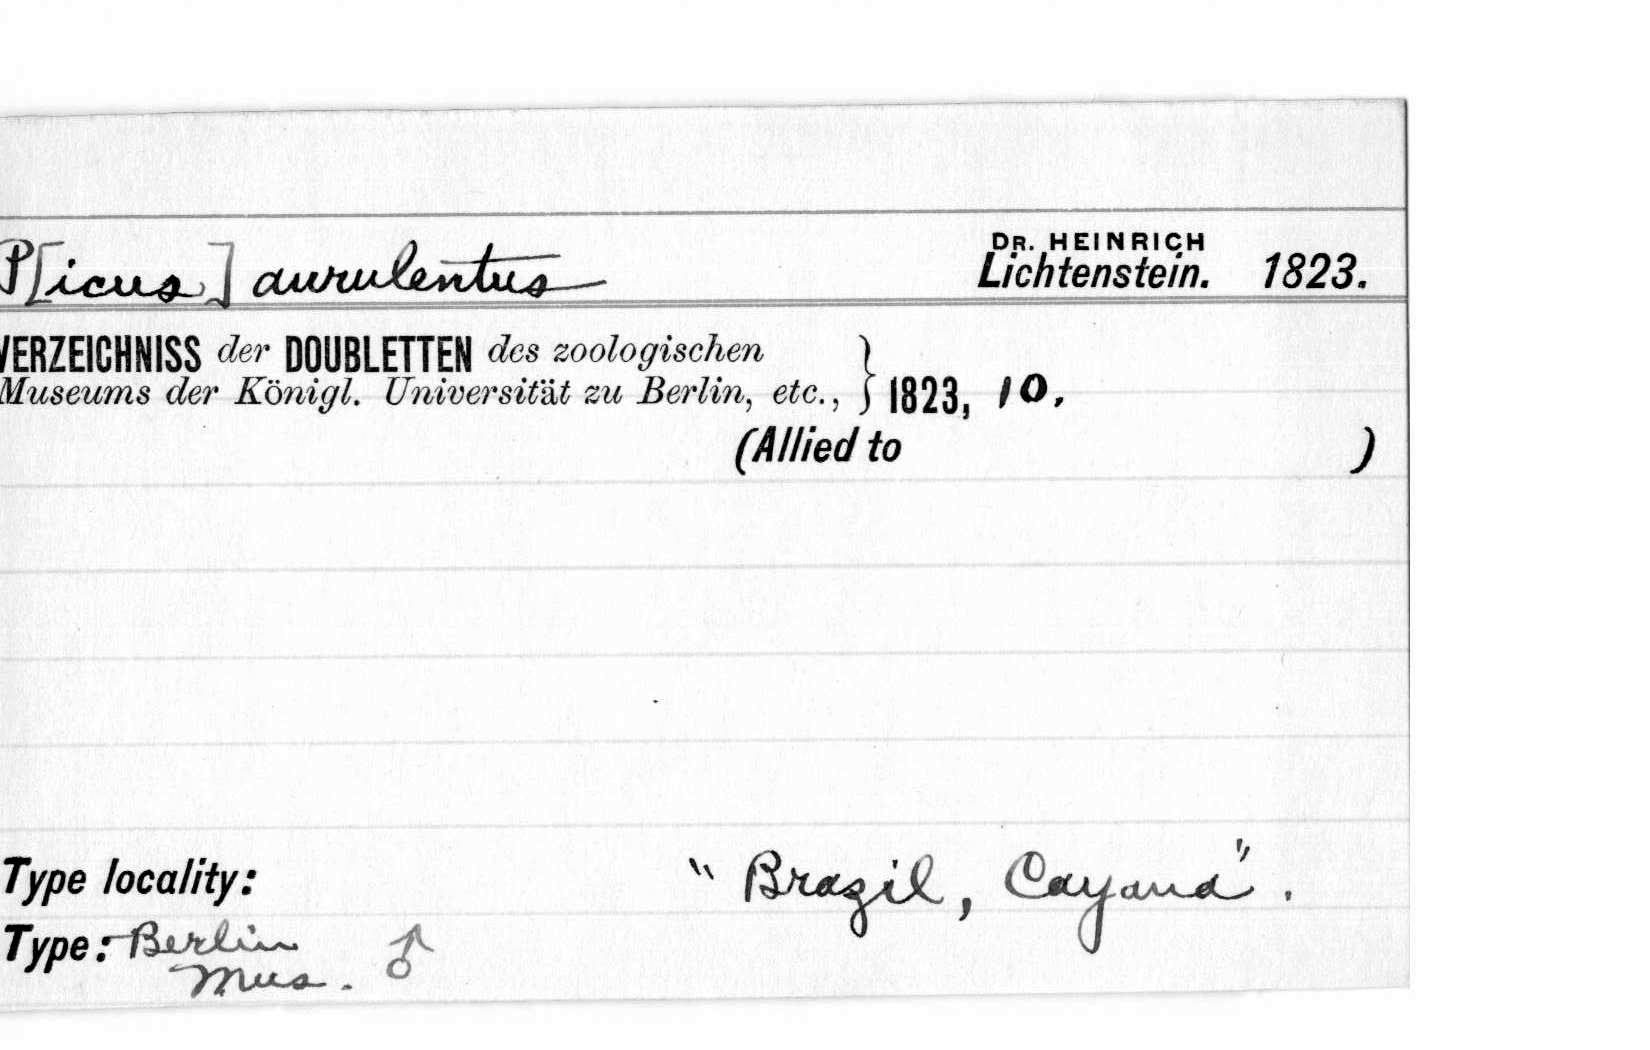 P[icus] aurulentus
DR. HEINRICH
Lichtenstein. 1823.
VERZEICHNISS der DOUBLETTEN des zoologischen
Museums der Königl. Universität zu Berlin, etc., } 1823, 10.
(Allied to )
Type locality: "Brazil, Cayana".
Type: Berlin
Mus. ♂